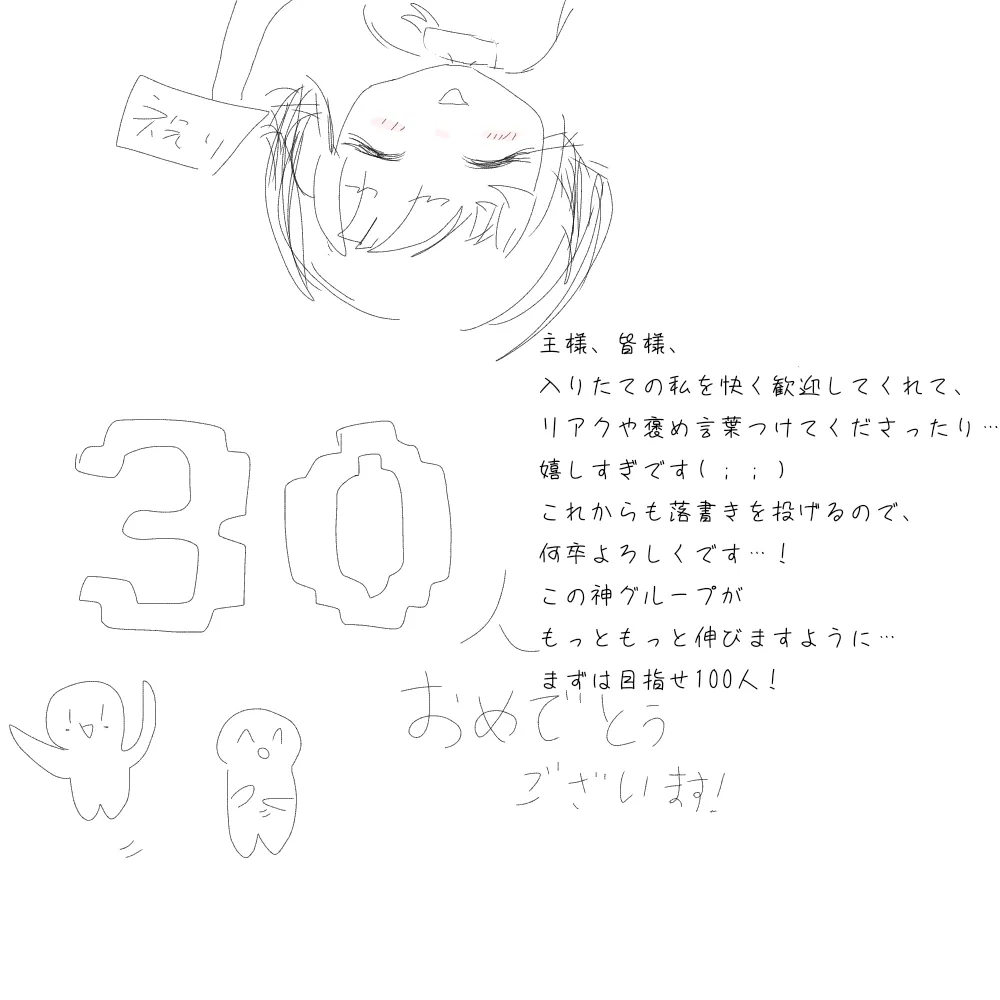 主様、皆様、
入りたての私を快く歓迎してくれて、
リアクや褒め言葉つけてくださったり…
嬉しすぎです( ; ; )
これからも落書きを投げるので、
何卒よろしくです…！
この神グループが
もっともっと伸びますように…
まずは目指せ100人！
30人
おめでとう
ございます!